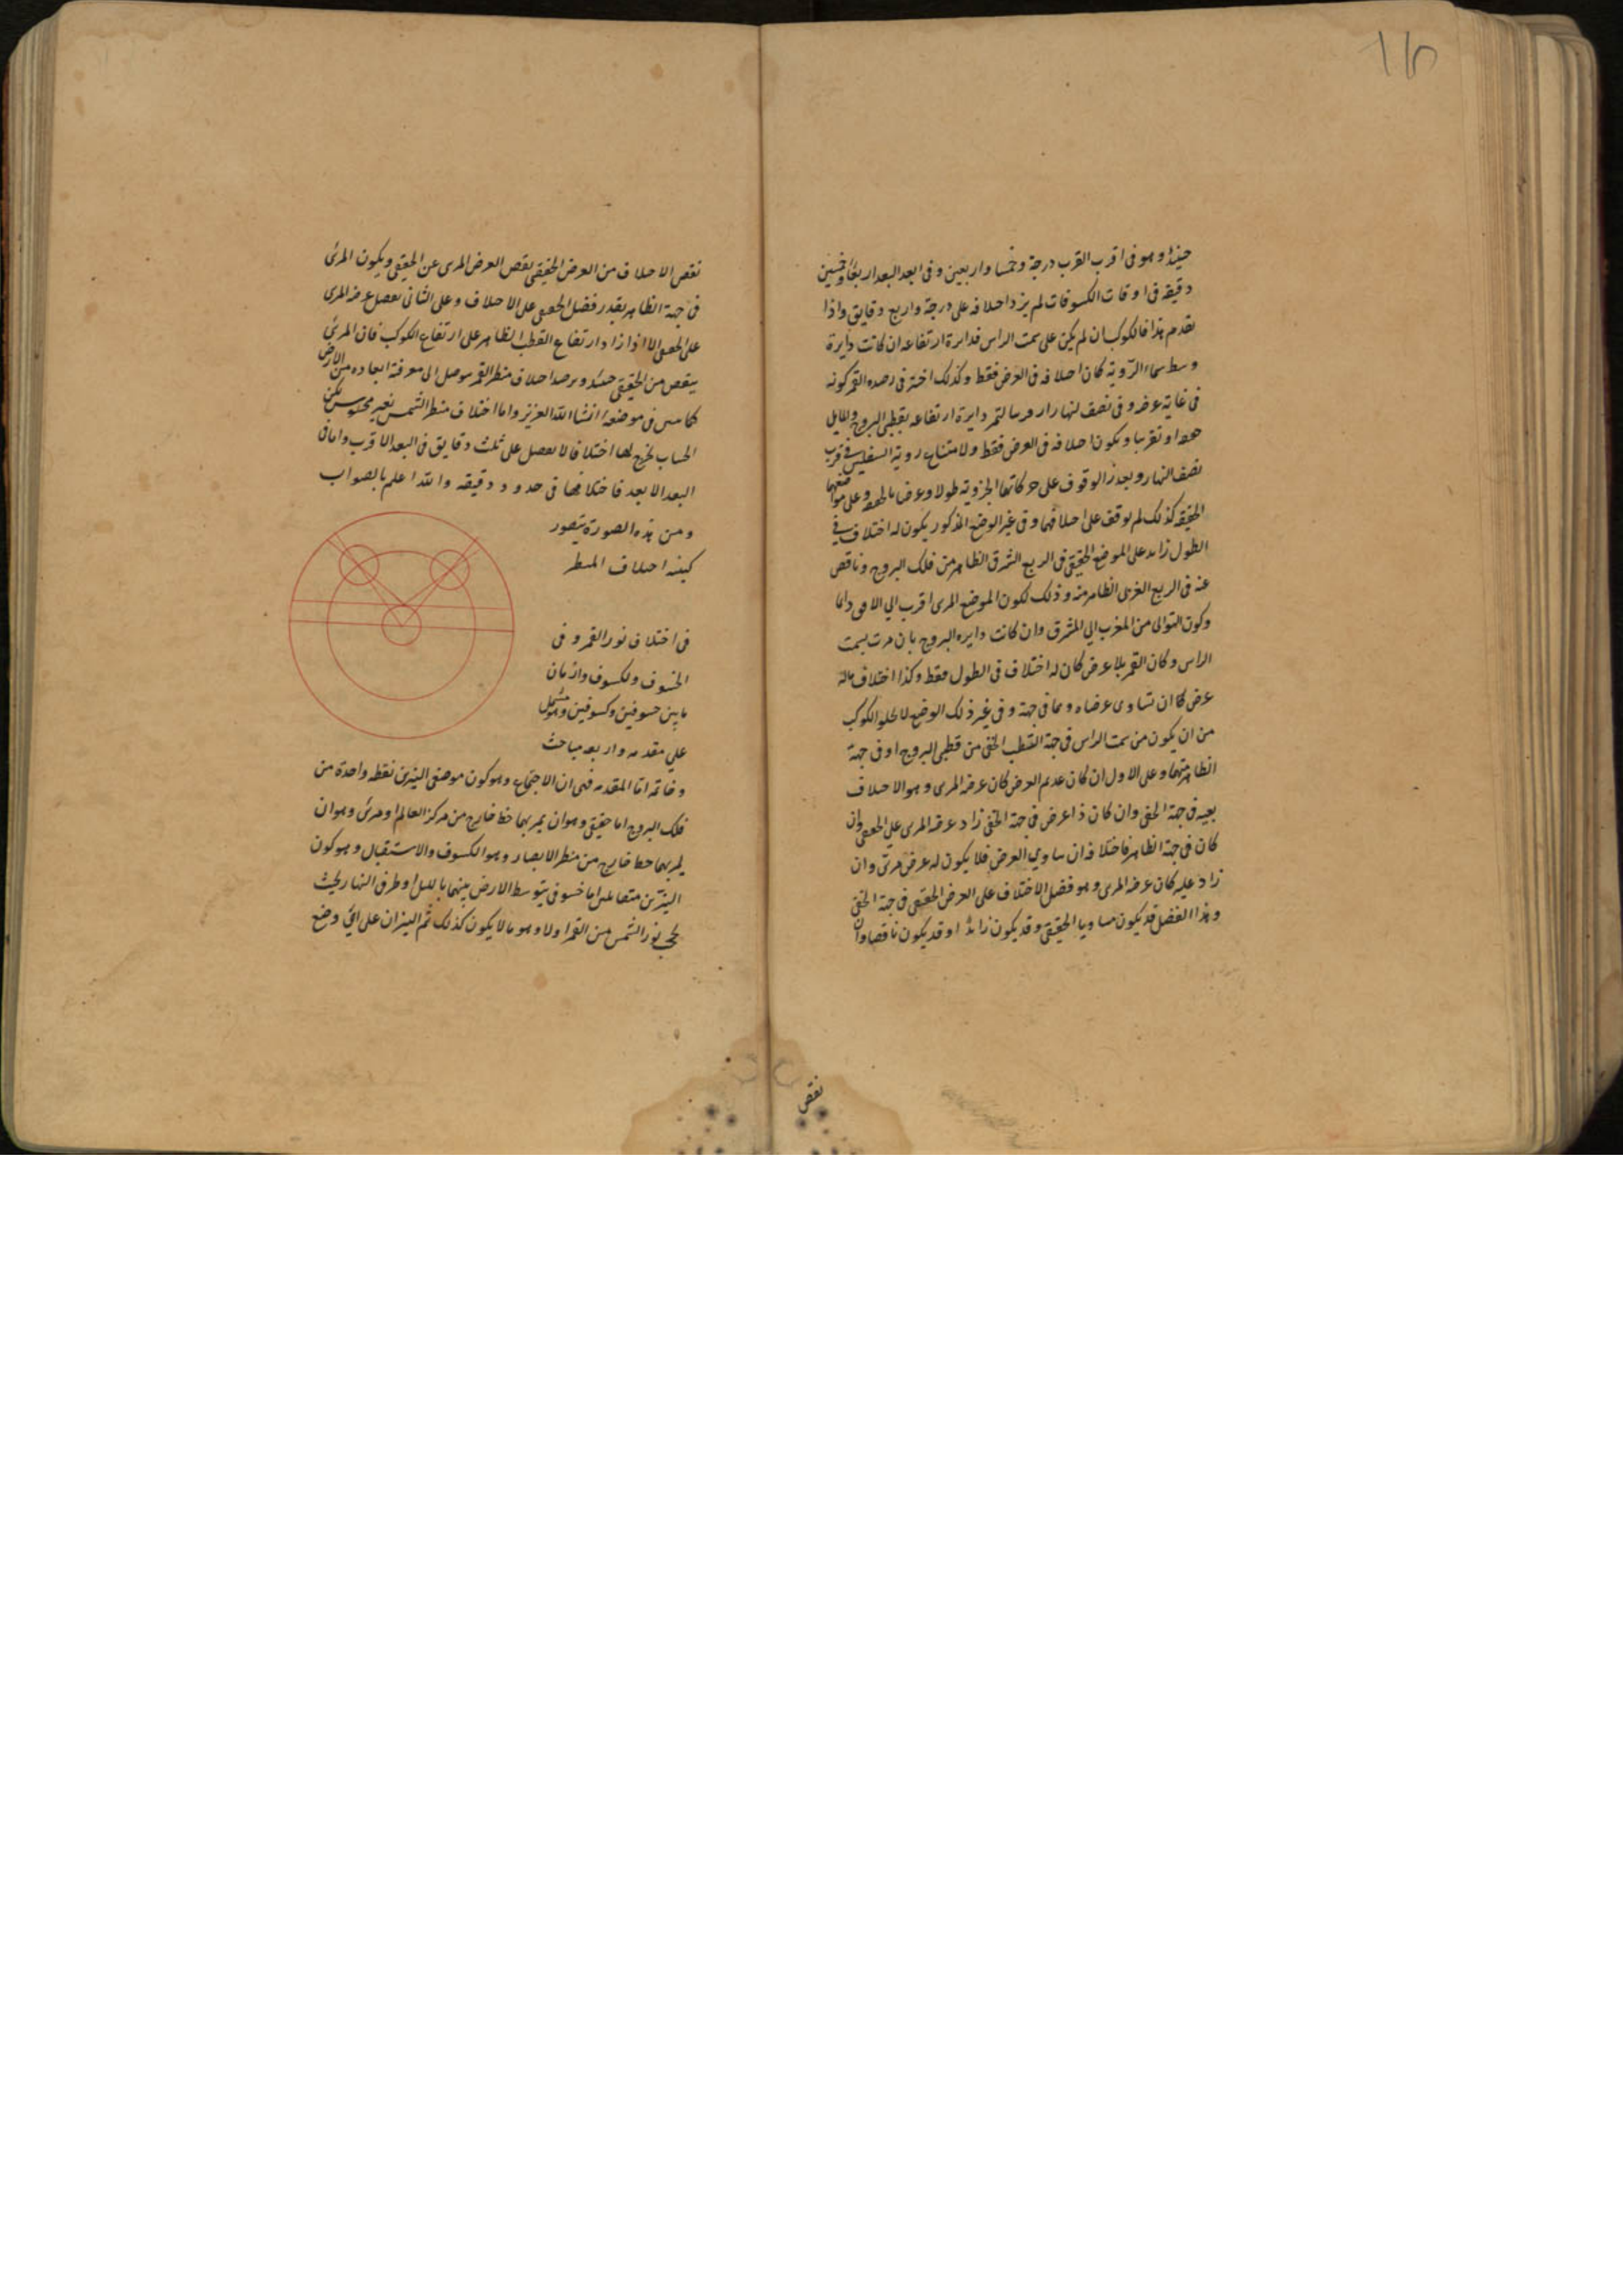 حينئذ وهو فى اقرب القرب درجة وخمسا واربعين وفى ابعد البعد اربعا وخمسين
دقيقه فى اوقات الكسوفات لم يزد احلافه على درجة واربع دقايق واذا
تقدم هذا فالكوكب ان لم يكن على سمت الراس فدايرة ارتفاعه ان كانت دايرة
وسط سماء الروية كان احلافه فى العرض فقط وكذلك اختير فى رصده القمر كونه
فى غاية عرضه وفى نصف النهار دايرة ارتفاعه بقطبى البروج والميل
او تقريبا ويكون احلافه فى العرض فقط ولامتناع روية السفليين فى قرب
نصف النهار وبعد الوقوف على حركاتها الجزوية طولا وعرضا وعلى مواضعهما
الحقيقه كذلك لم يوقف على احلافهما وفى غير الوضع المذكور يكون له اختلاف فى
الطول زايد على الموضع الحقيقى فى الربع الشرقى الظاهر من فلك البروج وناقص
عنه فى الربع الغربى الظاهر منه وذلك لكون الموضع المرى اقرب الى الافق دائما
وكون التوالى من المغرب الى المشرق وان كانت دايره البروج بان مرت بسمت
الراس وكان القمر بلا عرض كان له اختلاف فى الطول فقط وكذا اختلاف ماله
عرض كان ان تساوى عرضاه وهما فى جهة وفى غير ذلك الوضع لا يخلو الكوكب
من ان يكون من سمت الراس فى جهة القطب الخفى من قطبى البروج او فى جهة
الظاهر منهما وعلى الاول ان كان عديم العرض كان عرضه المرى وهو الاحلاف
بعينه فى جهة الخفى وان كان ذا عرض فى جهة الخفى زاد عرضه المرى على الحقيقى وان
كان فى جهة الظاهر فاختلافه ان ساوى العرض فلا يكون له عرض مرئى وان
زاد عليه كان عرضه المرى وهو فضل الاختلاف على العرض الحقيقى فى جهة الخفى
وهذا الفضل قد يكون مساويا للحقيقى وقد يكون زايدا وقد يكون ناقصا وان
نقص
نقص الاحلاف من العرض الحقيقى نقص العرض المرى عن الحقيقى ويكون المرئى
فى جهة الظاهر بقدر فضل الحقيقى على الاحلاف وعلى الثانى يفضل عرضه المرى
على الحقيقى الا اذا زاد ارتفاع القطب الظاهر على ارتفاع الكوكب فان المرئى
ينقص من الحقيقى حينئذ ورصد احلاف منظر القمر يوصل الى معرفة ابعاده من الارض
كما سن فى موضعه انشا الله العزيز واما اختلاف منظر الشمس فغير محسوس لكن
الحساب يخرج لها اختلافا لا يفضل على ثلث دقايق فى البعد الاقرب واما فى
البعد الابعد فاختلافها فى حدود دقيقه والله اعلم بالصواب
ومن هذه الصورة يتصور
كيفيه احلاف المنظر
فى اختلاف نور القمر وفى
الخسوف والكسوف وازمان
مابين خسوفين وكسوفين وهو مشتمل
على مقدمه واربعه مباحث
وخاتمه اما المقدمه فهى ان الاجتماع وهو كون موضعى النيرين نقطه واحدة من
فلك البروج اما حقيقى وهو ان يمر بهما خط خارج من مركز العالم او مرئى وهو ان
يمر بهما خط خارج من منظر الابصار وهو الكسوف والاستقبال وهو كون
النيرين متقابلين اما خسوفى يتوسط الارض بينهما بالليل او طرفى النهار بحيث
يحجب نور الشمس من القمر اولا وهو مالا يكون كذلك ثم النيران على اى وضع